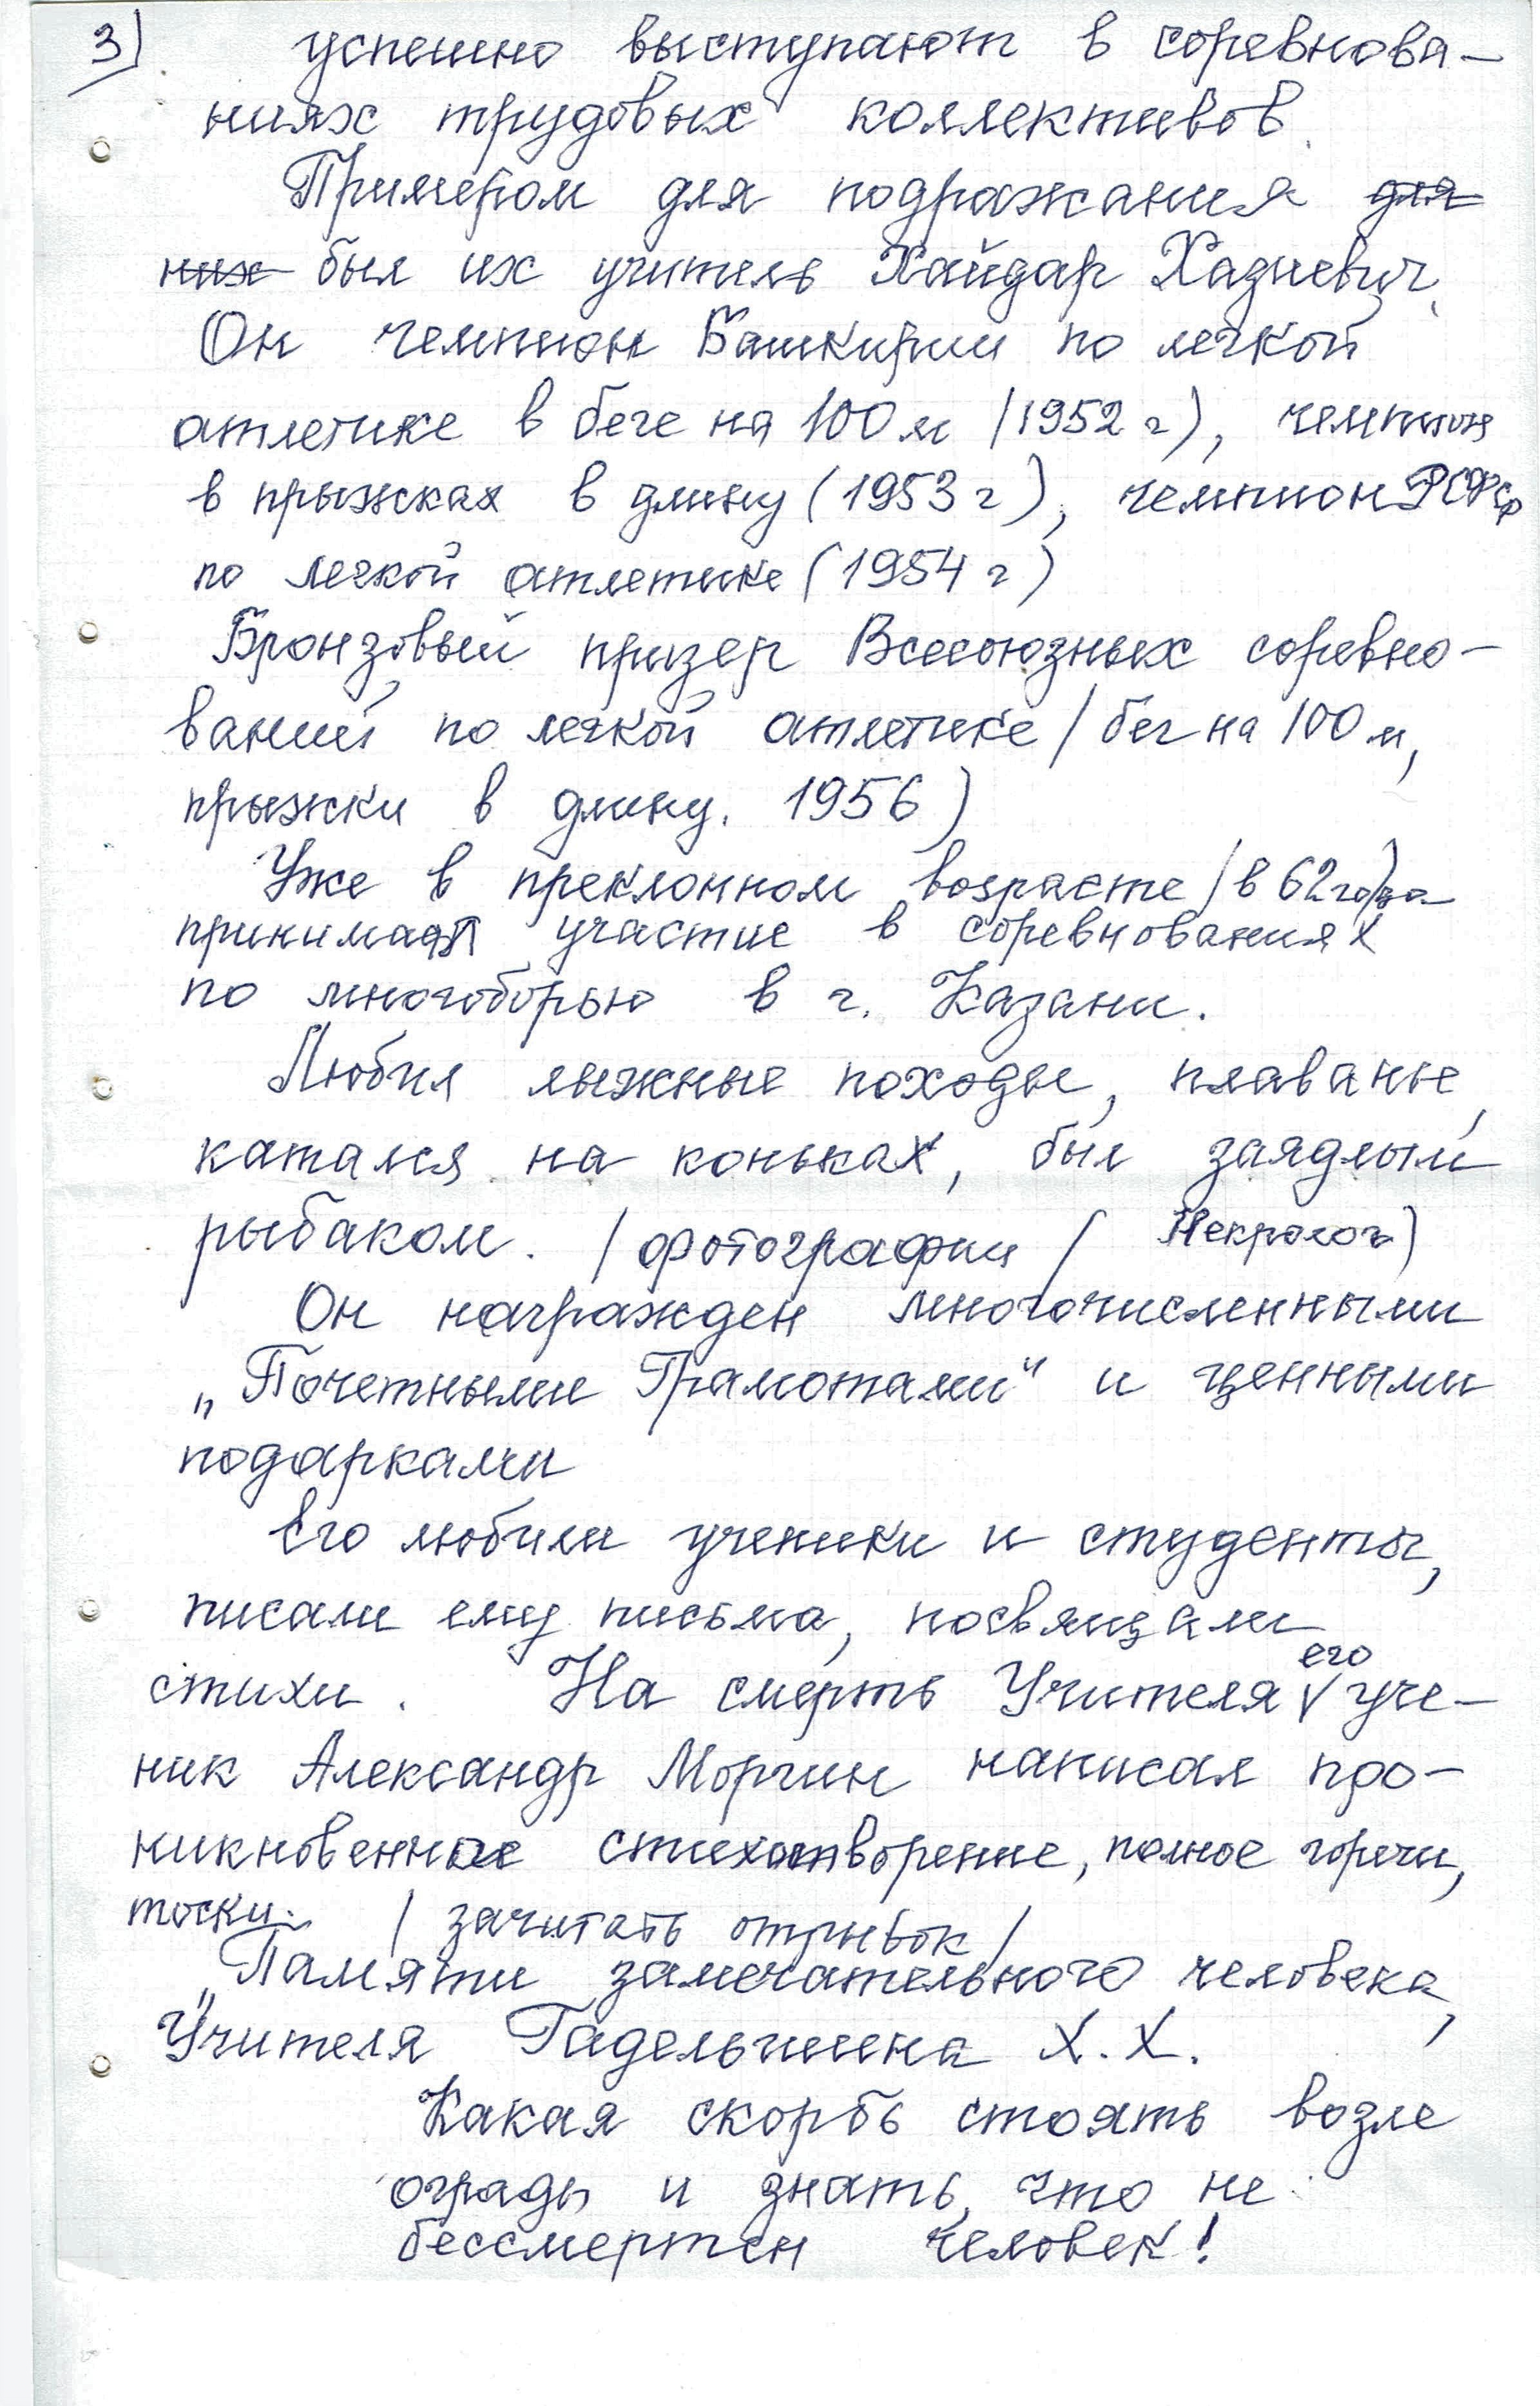 3) успешно выступают в соревнова-
ниях трудовых коллективов.
Примером для подражания для
них был их учитель Хайдар Хазиевич.
Он чемпион Башкирии по легкой
атлетике в беге на 100 м (1952 г), чемпион
в прыжках в длину (1953 г), чемпион РСФСР
по легкой атлетике (1954 г)
Бронзовый призер Всесоюзных соревно-
ваний по легкой атлетике (бег на 100 м,
прыжки в длину. 1956)
Уже в преклонном возрасте (в 62 года)
принимает участие в соревнованиях
по многоборью в г. Казани.
Любил лыжные походы, плаванье,
катался на коньках, был заядлым
рыбаком. (фотографии / Некролог)
Он награжден многочисленными
„Почетными Грамотами“ и ценными
подарками
Его любили ученики и студенты,
писали ему письма, посвящали
стихи. На смерть Учителя его уче-
ник Александр Моргин написал про-
никновенное стихотворение, полное горечи,
тоски. / зачитать отрывок /
„Памяти замечательного человека,
Учителя Гадельшина Х. Х.
Какая скорбь стоять возле
ограды и знать, что не
бессмертен человек!